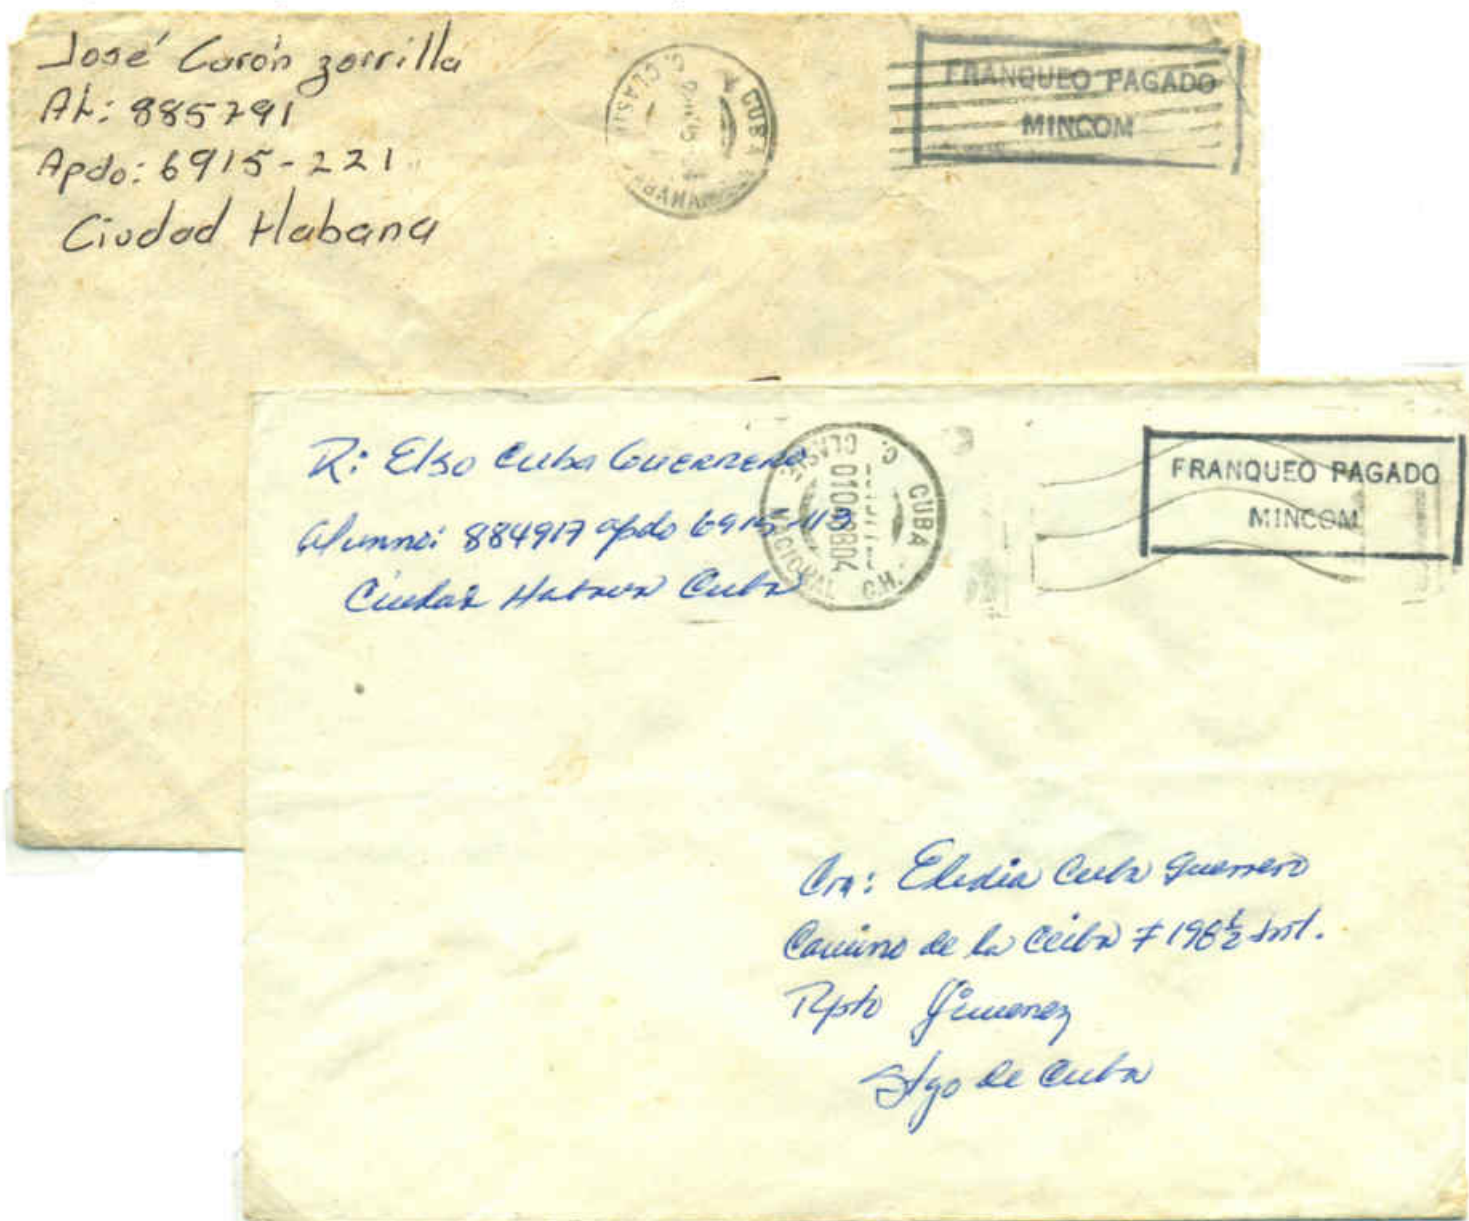 José Carón Zorrilla
AL: 885791
Apdo: 6915-221
Ciudad Habana
CUBA
C. CLASIF.
HABANA
FRANQUEO PAGADO
MINCOM
R: Elso Cuba GUERRERO
Alumno: 884917 apdo 6915-113
Ciudad Habana Cuba
C. CLASIF. CUBA
NACIONAL C.H.
FRANQUEO PAGADO
MINCOM
Cra: Eledia Cuba Guerrero
Camino de la Ceiba # 196½ Int.
Rpto Jimenez
Stgo de Cuba